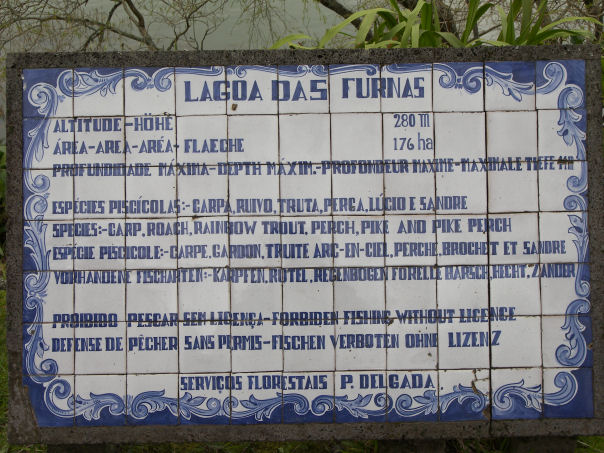 LAGOA DAS FURNAS
ALTITUDE - HÖHE 280 m
ÁREA - AREA - ARÉA - FLAECHE 176 ha
PROFUNDIDADE MÁXIMA - DEPTH MAXIM. - PROFONDEUR MAXIME - MAXIMALE TIEFE
ESPÉCIES PISCÍCOLAS:- CARPA, RUIVO, TRUTA, PERCA, LÚCIO E SANDRE
SPECIES:- CARP, ROACH, RAINBOW TROUT, PERCH, PIKE AND PIKE PERCH
ESPÉCIE PISCICOLE:- CARPE, GANDON, TRUITE ARC-EN-CIEL, PERCHE, BROCHET ET SANDRE
VORHANDENE FISCHARTEN:- KARPFEN, ROTEL, REGENBOGEN FORELLE, BARSCH, HECHT, ZANDER
PROIBIDO PESCAR SEM LICENÇA - FORBIDEN FISHING, WITHOUT LICENCE
DEFENSE DE PÊCHER SANS PERMIS - FISCHEN VERBOTEN OHNE LIZENZ
SERVIÇOS FLORESTAIS P. DELGADA